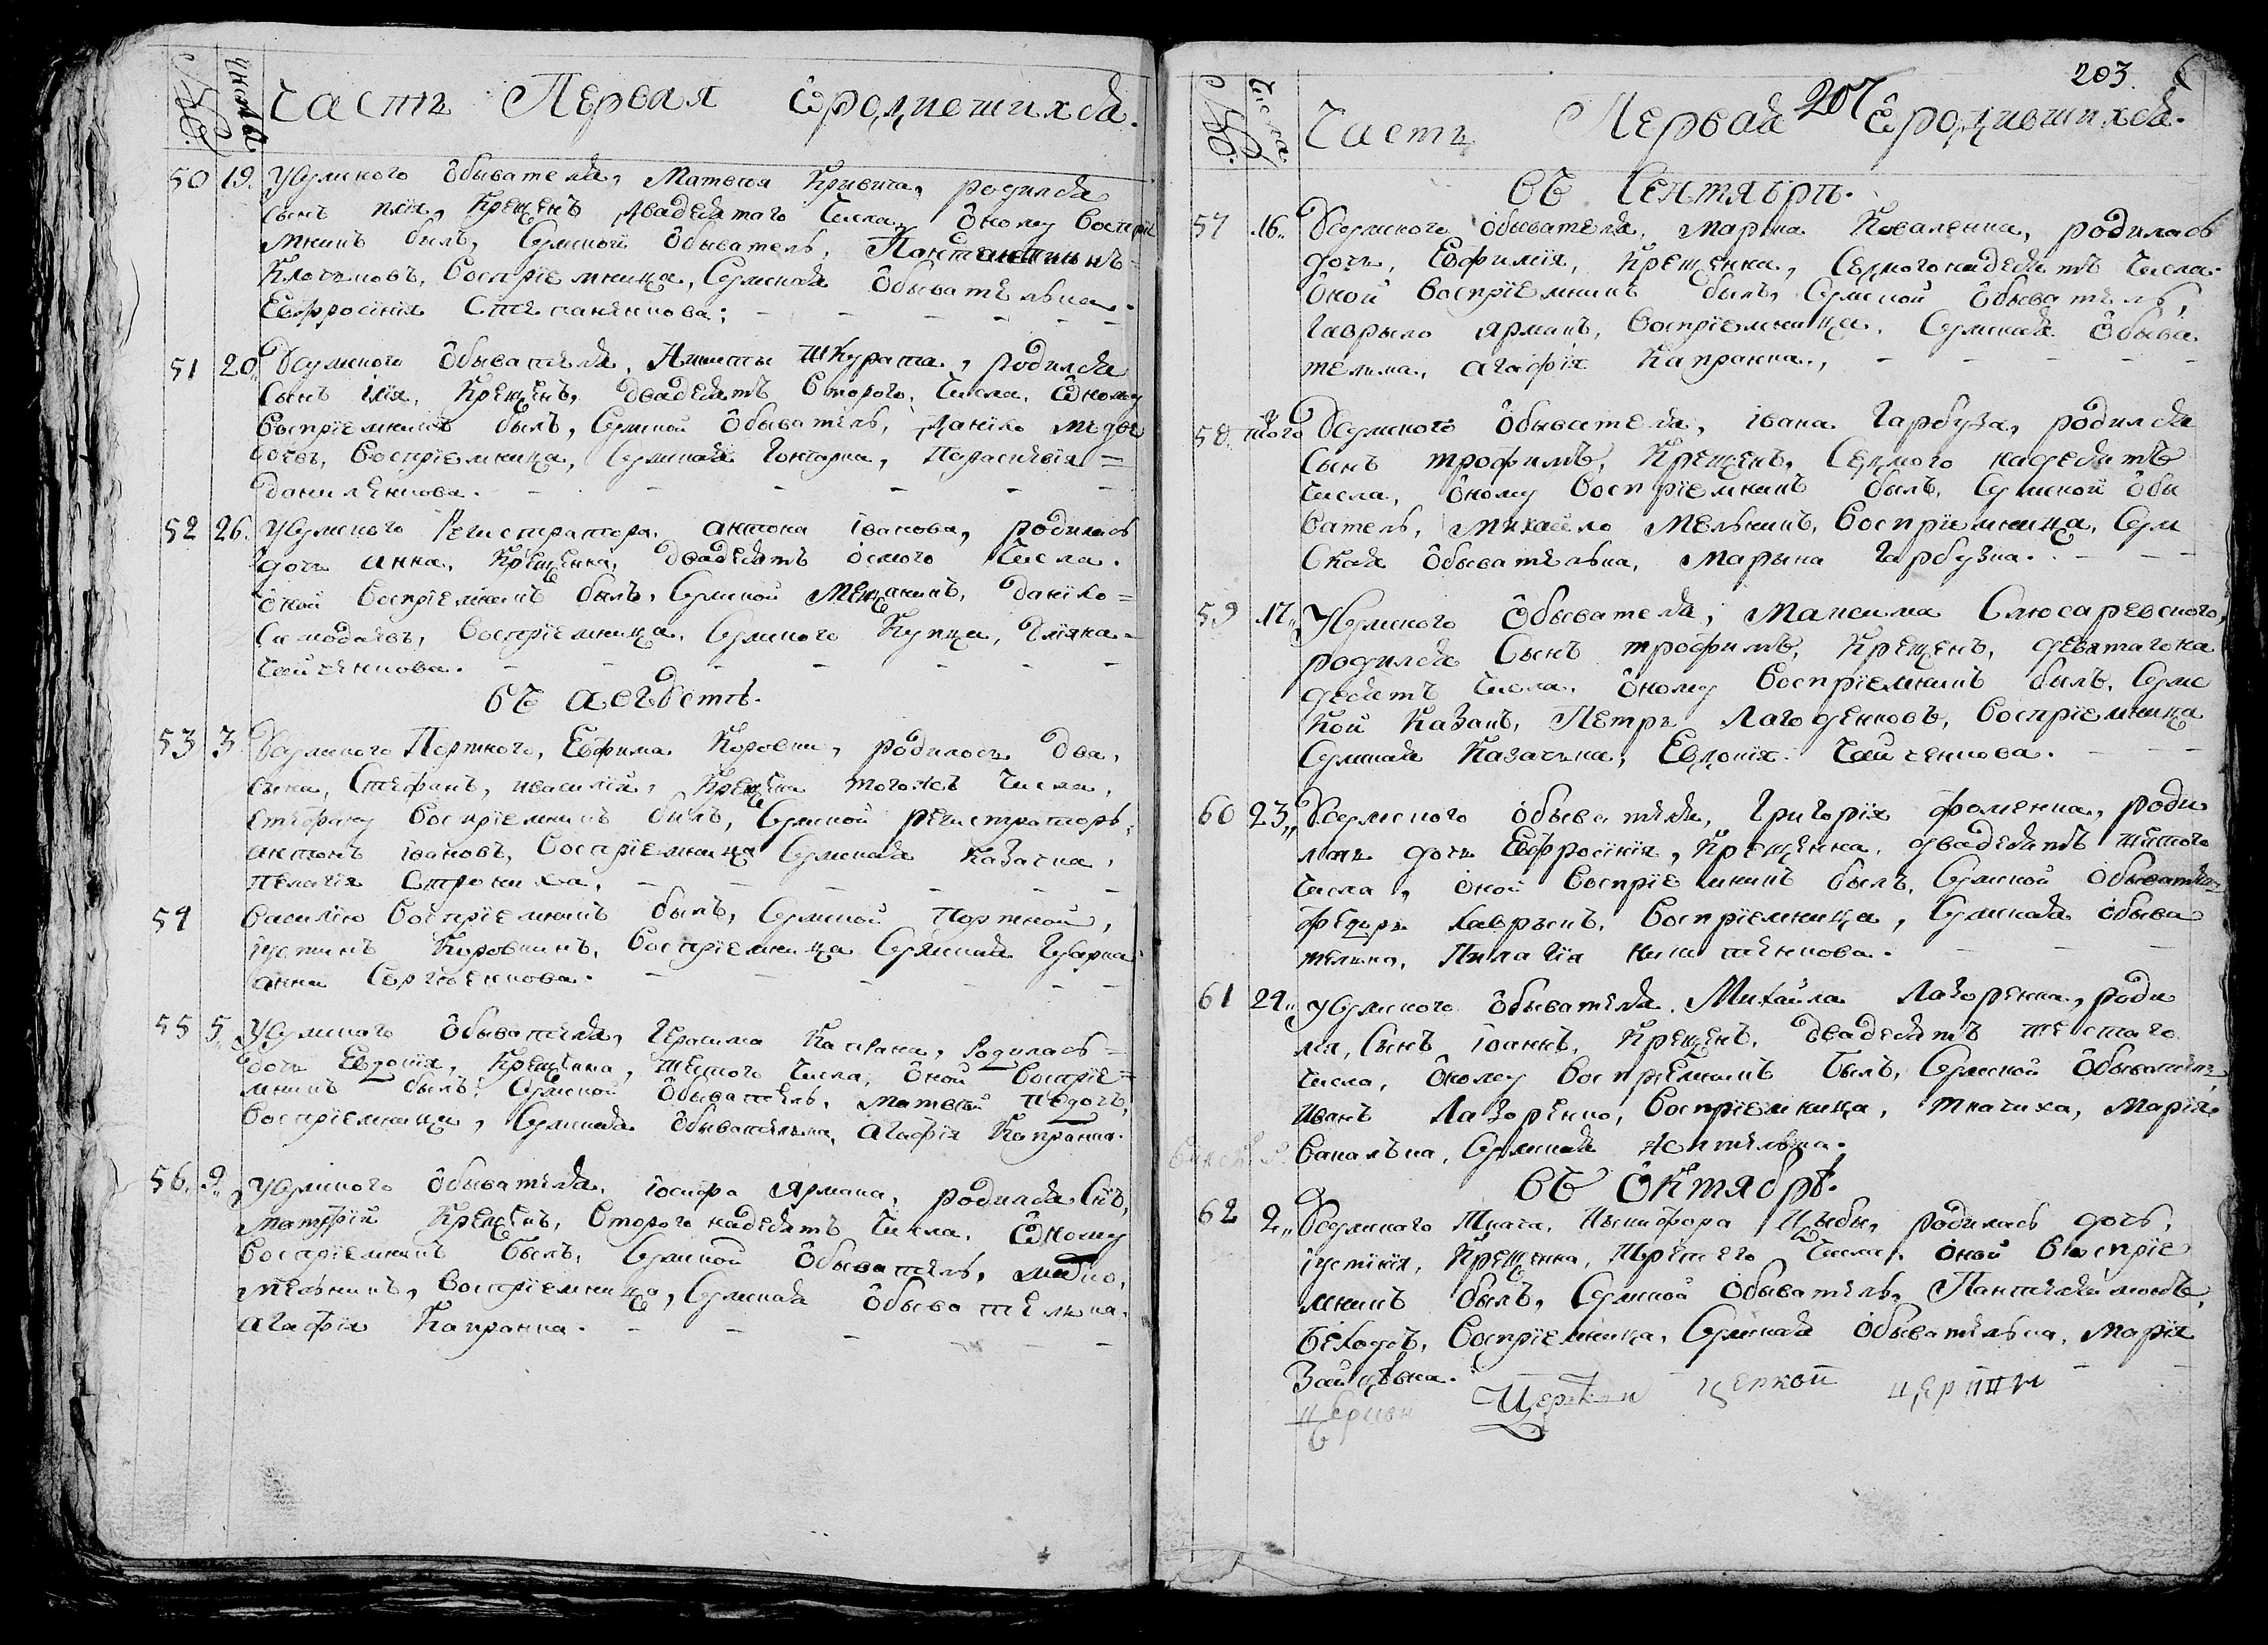 №
числа
Часть Первая ѽродившихся.
50 19. Усумского Обывателя, Матвея Кривича, родился
сынъ илія, Крещенъ двадесятаго Числа, Оному воспріе
мникъ былъ, Сумской Обыватель,
Клочковъ, Воспріемница, Сумская Обывателька
Евфросинія Степаненкова;
51 20 Усумского Обывателя, Никиты Шкурата, родился
Сынъ Ілія, Крещенъ, двадесять Второго, Числа, Ѽному
Воспріемникъ былъ, Сумской Обыватель, Даніло Медве
довъ, Воспріемница, Сумская Гонтарка, Параскевія
даниленкова.
52 26. Усумского Регистратора антона іванова, родилась
дочь анна, Крещенна, двадесять осмого Числа.
оной воспріемникъ былъ, Сумской Мещанинъ, Даніло
Самодаевъ, Воспріемница, Сумского Купца, Уліяна
Чайченкова.
въ августѣ.
53 3 Усумского Портного, Евфима Коровки, родилось два,
сына, Стефанъ, ивасилій, Крещены тогожъ Числа,
стефану Воспріемникъ былъ, Сумской регистраторъ,
антонъ іановъ, Воспріемница Сумская Казачка,
пелагія
54 василію воспріемникъ былъ, Сумской Портной,
іустинъ Коровкинъ, Воспріемница Сумская
анна Сергіенкова.
55 5 Усумского Обывателя, Герасима Каплана, родилась
дочь Евдокія, Крещенна, шестого Числа, Оной Воспріе
мникъ былъ, Сумской Обыватель, матвей
Воспріемница, Сумская Обывателька, Агафія Капранка.
56. 9. Усумского Обывателя, іосифа Ярмака, родился Снъ,
матфій Крещенъ, Второго надесять Числа, Ѽному
Воспріемникъ былъ, Сумской Обыватель,
мельникъ, Воспріемница, Сумская Обывателька,
агафія Капранка.
203.
207
№
Числа
Часть Первая ѽродившихся.
въ Сентябрѣ.
57 16. Усумского Обывателя, Марка Коваленка, родилась
дочь, Евфимія, Крещенна, Седмогонадесять Числа.
Оной воспріемникъ былъ, Сумской Обыватель,
Гаврыло Ярмакъ, Воспріемница, Сумская Обыва
телька, агафія Капранка,
58. того Усумского Обывателя, івана Гарбуза, родился
Сынъ трофимъ, Крещенъ, Седмого надесять
Числа, Оному Воспріемникъ былъ, Сумской Обы
ватель, Михайло Мельникъ, Воспріемница, Сум
Ская Обывателька, Марына Гарбузка.
59 17. Усумского Обывателя, Максима Слюсаревского,
родился Сынъ трофимъ, Крещенъ, девятагона
десять Числа. Оному Воспріемникъ былъ, Сумс
кой Казакъ, Петръ Лагоденковъ, Воспріемница
Сумская Казачка, Евдокія Чайченкова.
60 23 Усумского обывателя, Григорія фоменка, роди
лась дочь Евфросинія, Крещенна, двадесять шестого
Числа, оной Воспріемникъ былъ, Сумской обыватель
федоръ Лаврыкъ, Воспріемница, Сумская обыва
телька, Пилагія
61 24 Усумского Обывателя, Михайла Лазоренка, роди
лся, Сынъ іоаннъ, Крещенъ, двадесять шестаго
Числа, Оному Воспріемникъ былъ, Сумской Обыватель,
иванъ Лазоренко, Воспріемница, Ткачиха, Марія
Сумская жителька.
въ Октябрѣ.
62 2 Усумского Ткача, Никифора Цыбы, родилась дочь,
іустинія, Крещенна, Третего Числа, оной воспріе
мникъ былъ, Сумской обыватель, Пантелеймонъ,
Беходъ, Воспріемница, Сумская Обывателька, Марія
Зайцѣвка.
Церкви церкой